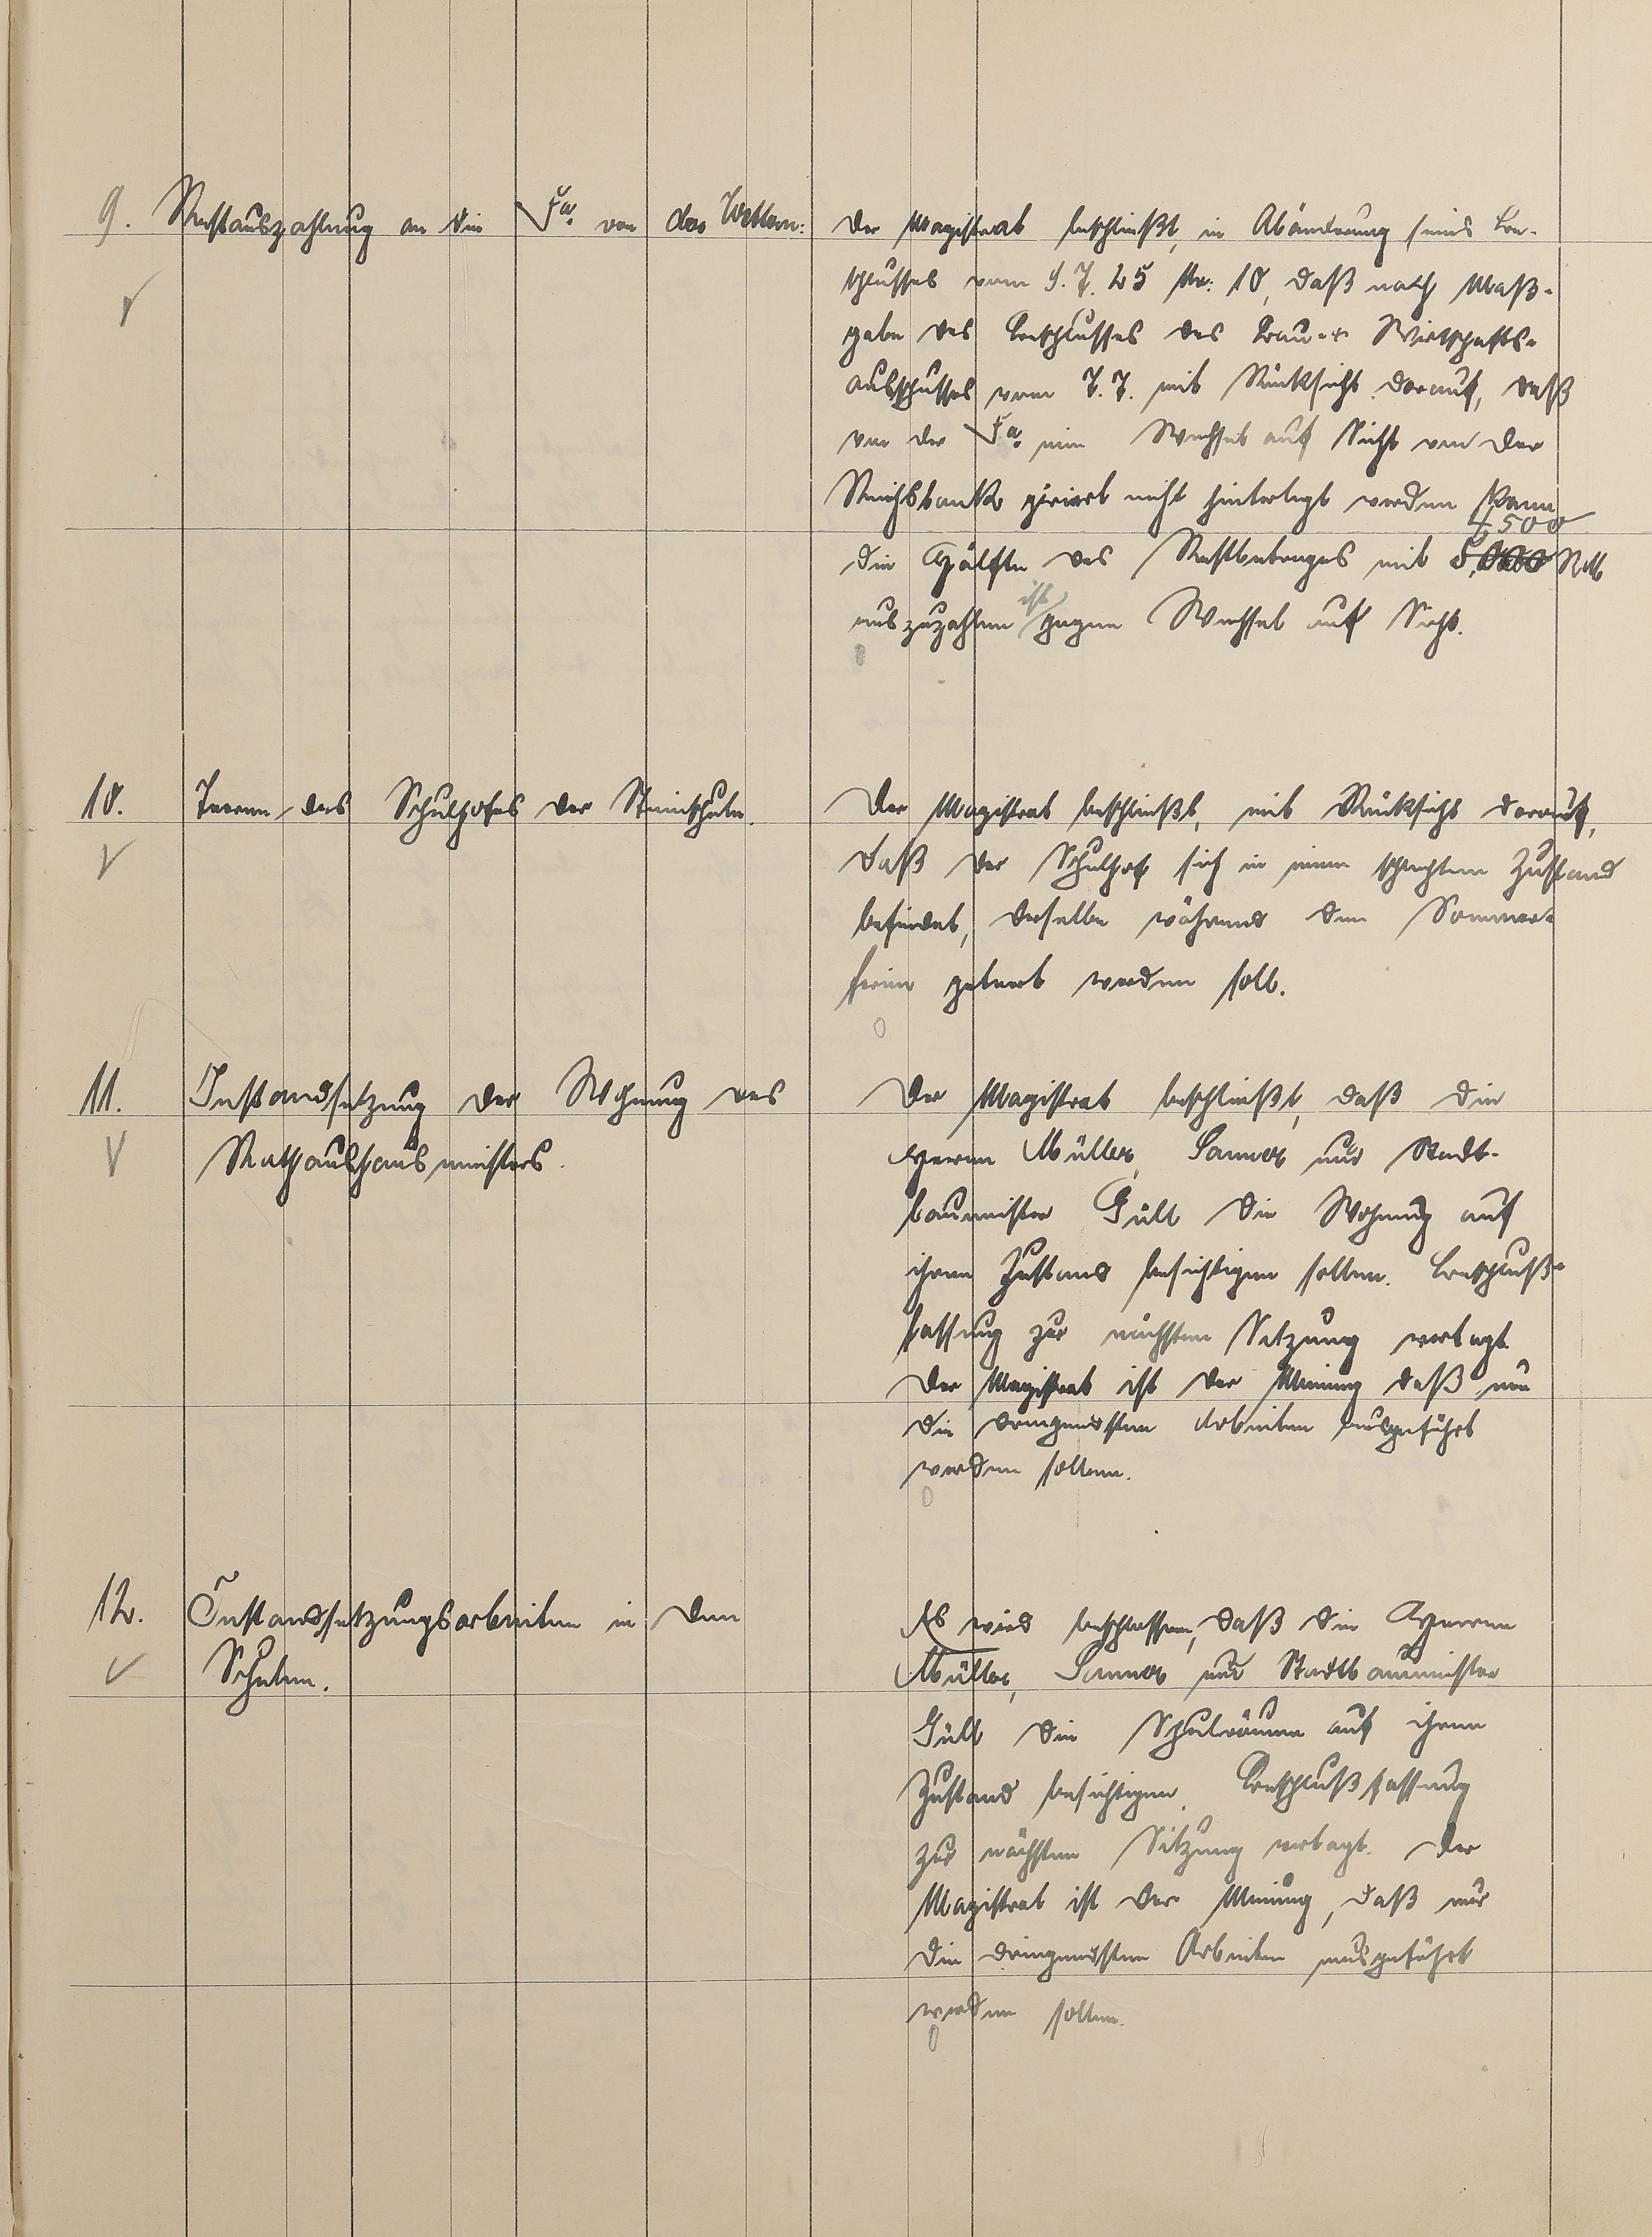 9. Restauszahlung an die Fa. von der Wettern:
Der Magistrat beschließt, in Abänderung seines Be-
schlusses vom 9.7.25 Nr: 10, daß nach Maß-
gabe des Beschlusses des Bau- u. Wirtschafts-
ausschusses vom 7.7. mit Rücksicht darauf, daß
von der Fa. ein Wechsel auf Sicht von der
Reichsbank giriert nicht hinterlegt werden kann
4500
die Hälfte des Restbetrages mit RM
ist
auszuzahlen gegen Wechsel auf Sicht.
10. Teeren des Schulhofes der Steinschule.
Der Magistrat beschließt, mit Rücksicht darauf,
daß der Schulhof sich in einem schlechten Zustand
befindet, derselbe während den Sommer-
ferien geteert werden soll.
11. Instandsetzung der Wohnung des
Rathaushausmeisters.
Der Magistrat beschließt, daß die
Herren Müller, Sauner und Stadt-
baumeister Gült die Wohnung auf
ihren Zustand besichtigen sollen. Beschluß-
fassung zur nächsten Sitzung vertagt.
Der Magistrat ist der Meinung daß nur
die dringendsten Arbeiten ausgeführt
werden sollen.
12. Instandsetzungsarbeiten in den
Schulen.
Es wird beschlossen, daß die Herren
Müller, Sauner und Stadtbaumeister
Gült die Schulräume auf ihren
Zustand besichtigen. Beschlußfassung
zur nächsten Sitzung vertagt. Der
Magistrat ist der Meinung, daß nur
die dringendsten Arbeiten ausgeführt
werden sollen.